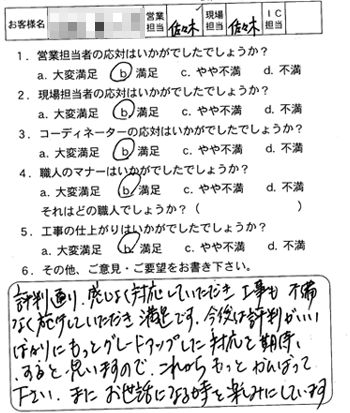 お客様名 営業担当 佐々木 現場担当 佐々木 IC担当
1．営業担当者の応対はいかがでしたでしょうか？
a. 大変満足 b. 満足 c. やや不満 d. 不満
2．現場担当者の応対はいかがでしたでしょうか？
a. 大変満足 b. 満足 c. やや不満 d. 不満
3．コーディネーターの応対はいかがでしたでしょうか？
a. 大変満足 b. 満足 c. やや不満 d. 不満
4．職人のマナーはいかがでしたでしょうか？
a. 大変満足 b. 満足 c. やや不満 d. 不満
それはどの職人でしょうか？（ ）
5．工事の仕上がりはいかがでしたでしょうか？
a. 大変満足 b. 満足 c. やや不満 d. 不満
6．その他、ご意見・ご要望をお書き下さい。
評判通り、対応していただき 工事も 不備
なく施工していただき 満足です。今後は評判がいい
ばかりにもっとグレードアップした対応を期待
すると思いますので、これからもっとがんばって
下さい。またお世話になる時を楽しみにしています